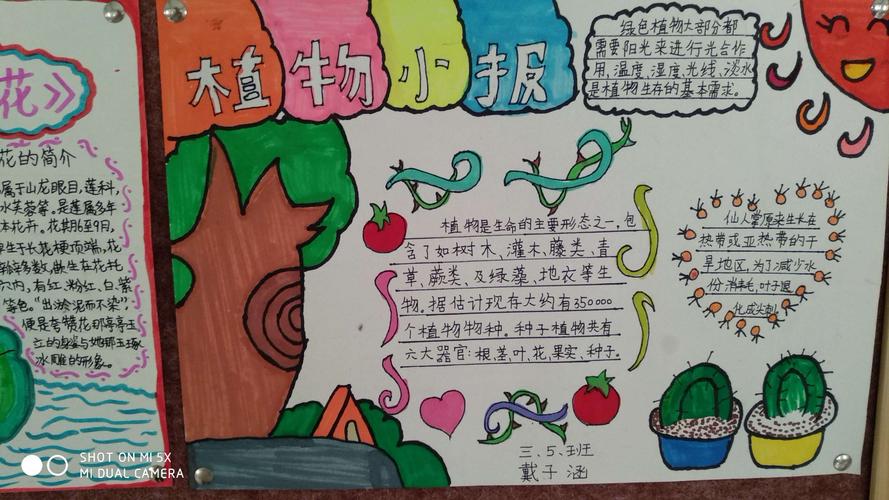 花》
花的简介
属于山龙眼目,莲科,
水芙蓉等。是莲属多年
本花卉。花期6至9月,
单生于长花梗顶端,花
六内,有红、粉红、白、紫
等色。"出淤泥而不染"
立的身姿与她那玉琢
冰雕的形象。
植物小报
绿色植物大部分都
需要阳光来进行光合作
用,温度、湿度、光线、淡水
是植物生存的基本需求。
植物是生命的主要形态之一,包
含了如树木、灌木、藤类、青
草、蕨类、及绿藻、地衣等生
物。据估计现存大约有350000
个植物物种。种子植物共有
六大器官:根、茎、叶、花、果实、种子。
仙人掌原来生长在
热带或亚热带的干
旱地区,为了减少水
份消耗,叶子退
化成头刺
三.5.班
戴子涵
SHOT ON MI 5X
MI DUAL CAMERA